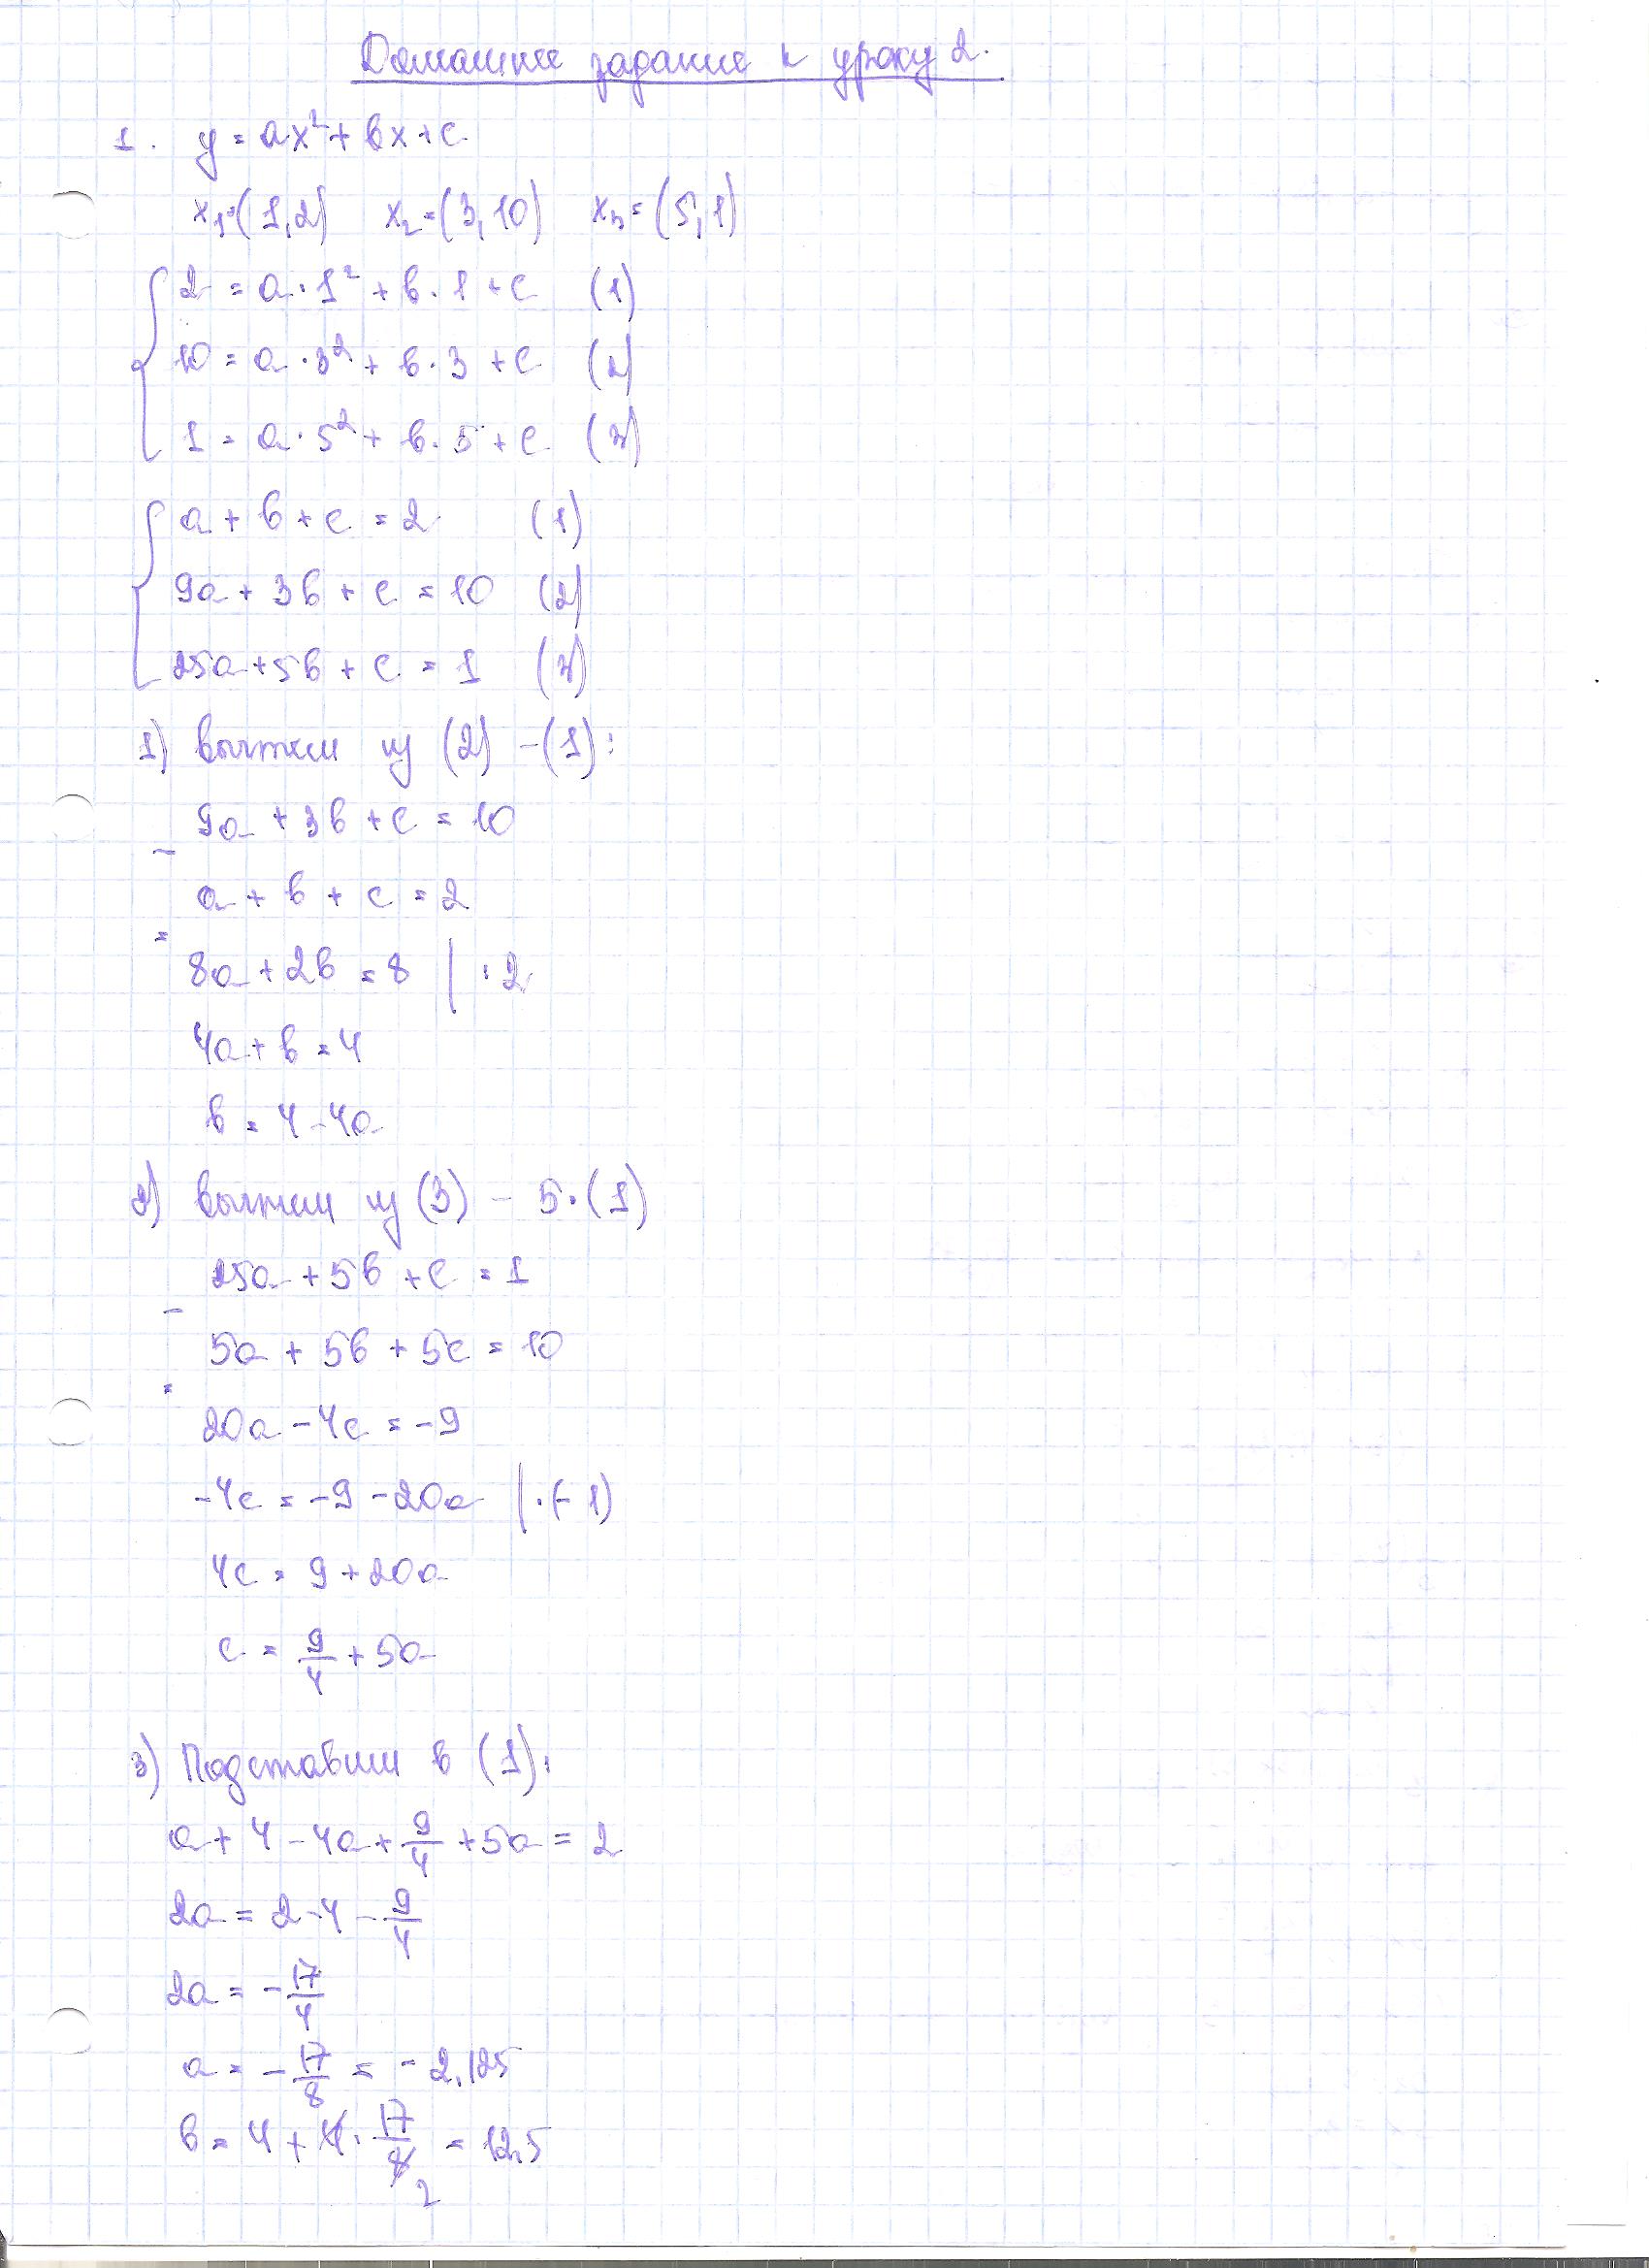 Домашнее задание к уроку 2.
1. y = ax² + bx + c
x₁=(1,2) x₂=(3,10) x₃=(5,1)
2 = a·1² + b·1 + c (1)
10 = a·3² + b·3 + c (2)
1 = a·5² + b·5 + c (3)
a + b + c = 2 (1)
9a + 3b + c = 10 (2)
25a + 5b + c = 1 (3)
1) вычтем из (2) - (1):
9a + 3b + c = 10
-
a + b + c = 2
=
8a + 2b = 8 | :2
4a + b = 4
b = 4 - 4a
2) вычтем из (3) - 5·(1)
25a + 5b + c = 1
-
5a + 5b + 5c = 10
=
20a - 4c = -9
-4c = -9 - 20a | ·(-1)
4c = 9 + 20a
c = 9/4 + 5a
3) Подставим в (1):
a + 4 - 4a + 9/4 + 5a = 2
2a = 2 - 4 - 9/4
2a = -17/4
a = -17/8 = -2,125
b = 4 + 4·17/8 = 12,5
2